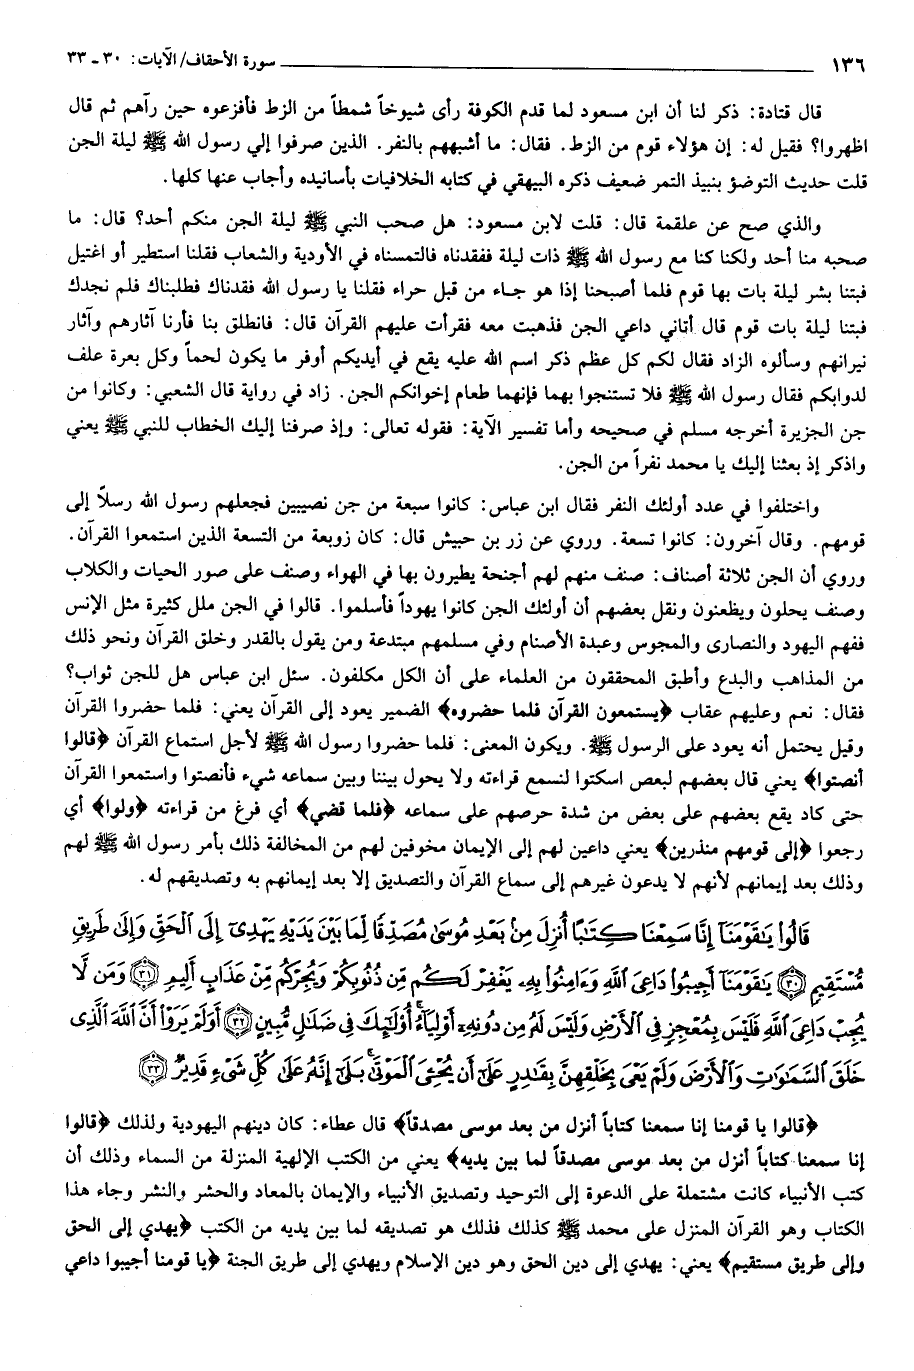 ١٣٦ سورة الأحقاف/ الآيات: ٣٠ ـ ٣٣
قال قتادة: ذكر لنا أن ابن مسعود لما قدم الكوفة رأى شيوخاً شمطاً من الزط فأفزعوه حين رآهم ثم قال
اظهروا؟ فقيل له: إن هؤلاء قوم من الزط. فقال: ما أشبههم بالنفر. الذين صرفوا إلي رسول الله ﷺ ليلة الجن
قلت حديث التوضؤ بنبيذ التمر ضعيف ذكره البيهقي في كتابه الخلافيات بأسانيده وأجاب عنها كلها.
والذي صح عن علقمة قال: قلت لابن مسعود: هل صحب النبي ﷺ ليلة الجن منكم أحد؟ قال: ما
صحبه منا أحد ولكنا كنا مع رسول الله ﷺ ذات ليلة ففقدناه فالتمسناه في الأودية والشعاب فقلنا استطير أو اغتيل
فبتنا بشر ليلة بات بها قوم فلما أصبحنا إذا هو جاء من قبل حراء فقلنا يا رسول الله فقدناك فطلبناك فلم نجدك
فبتنا ليلة بات قوم قال أتاني داعي الجن فذهبت معه فقرأت عليهم القرآن قال: فانطلق بنا فأرنا آثارهم وآثار
نيرانهم وسألوه الزاد فقال لكم كل عظم ذكر اسم الله عليه يقع في أيديكم أوفر ما يكون لحماً وكل بعرة علف
لدوابكم فقال رسول الله ﷺ فلا تستنجوا بهما فإنهما طعام إخوانكم الجن. زاد في رواية قال الشعبي: وكانوا من
جن الجزيرة أخرجه مسلم في صحيحه وأما تفسير الآية: فقوله تعالى: وإذ صرفنا إليك الخطاب للنبي ﷺ يعني
واذكر إذ بعثنا إليك يا محمد نفراً من الجن.
واختلفوا في عدد أولئك النفر فقال ابن عباس: كانوا سبعة من جن نصيبين فجعلهم رسول الله رسلاً إلى
قومهم. وقال آخرون: كانوا تسعة. وروي عن زر بن حبيش قال: كان زوبعة من التسعة الذين استمعوا القرآن.
وروي أن الجن ثلاثة أصناف: صنف منهم لهم أجنحة يطيرون بها في الهواء وصنف على صور الحيات والكلاب
وصنف يحلون ويظعنون ونقل بعضهم أن أولئك الجن كانوا يهوداً فأسلموا. قالوا في الجن ملل كثيرة مثل الإنس
ففهم اليهود والنصارى والمجوس وعبدة الأصنام وفي مسلمهم مبتدعة ومن يقول بالقدر وخلق القرآن ونحو ذلك
من المذاهب والبدع وأطبق المحققون من العلماء على أن الكل مكلفون. سئل ابن عباس هل للجن ثواب؟
فقال: نعم وعليهم عقاب ﴿يستمعون القرآن فلما حضروه﴾ الضمير يعود إلى القرآن يعني: فلما حضروا القرآن
وقيل يحتمل أنه يعود على الرسول ﷺ. ويكون المعنى: فلما حضروا رسول الله ﷺ لأجل استماع القرآن ﴿قالوا
أنصتوا﴾ يعني قال بعضهم لبعض اسكتوا لنسمع قراءته ولا يحول بيننا وبين سماعه شيء فأنصتوا واستمعوا القرآن
حتى كاد يقع بعضهم على بعض من شدة حرصهم على سماعه ﴿فلما قضي﴾ أي فرغ من قراءته ﴿ولوا﴾ أي
رجعوا ﴿إلى قومهم منذرين﴾ يعني داعين لهم إلى الإيمان مخوفين لهم من المخالفة ذلك بأمر رسول الله ﷺ لهم
وذلك بعد إيمانهم لأنهم لا يدعون غيرهم إلى سماع القرآن والتصديق إلا بعد إيمانهم به وتصديقهم له.
قَالُوا يَٰقَوْمَنَآ إِنَّا سَمِعْنَا كِتَٰبًا أُنزِلَ مِنۢ بَعْدِ مُوسَىٰ مُصَدِّقًا لِّمَا بَيْنَ يَدَيْهِ يَهْدِىٓ إِلَى ٱلْحَقِّ وَإِلَىٰ طَرِيقٍ
مُّسْتَقِيمٍ ﴿٣٠﴾ يَٰقَوْمَنَآ أَجِيبُوا دَاعِىَ ٱللَّهِ وَءَامِنُوا بِهِۦ يَغْفِرْ لَكُم مِّن ذُنُوبِكُمْ وَيُجِرْكُم مِّنْ عَذَابٍ أَلِيمٍ ﴿٣١﴾ وَمَن لَّا
يُجِبْ دَاعِىَ ٱللَّهِ فَلَيْسَ بِمُعْجِزٍ فِى ٱلْأَرْضِ وَلَيْسَ لَهُۥ مِن دُونِهِۦٓ أَوْلِيَآءُ ۚ أُو۟لَٰٓئِكَ فِى ضَلَٰلٍ مُّبِينٍ ﴿٣٢﴾ أَوَلَمْ يَرَوْا أَنَّ ٱللَّهَ ٱلَّذِى
خَلَقَ ٱلسَّمَٰوَٰتِ وَٱلْأَرْضَ وَلَمْ يَعْىَ بِخَلْقِهِنَّ بِقَٰدِرٍ عَلَىٰٓ أَن يُحْـِۧىَ ٱلْمَوْتَىٰ ۚ بَلَىٰٓ إِنَّهُۥ عَلَىٰ كُلِّ شَىْءٍ قَدِيرٌ ﴿٣٣﴾
﴿قالوا يا قومنا إنا سمعنا كتاباً أنزل من بعد موسى مصدقاً﴾ قال عطاء: كان دينهم اليهودية ولذلك ﴿قالوا
إنا سمعنا كتاباً أنزل من بعد موسى مصدقاً لما بين يديه﴾ يعني من الكتب الإلهية المنزلة من السماء وذلك أن
كتب الأنبياء كانت مشتملة على الدعوة إلى التوحيد وتصديق الأنبياء والإيمان بالمعاد والحشر والنشر وجاء هذا
الكتاب وهو القرآن المنزل على محمد ﷺ كذلك فذلك هو تصديقه لما بين يديه من الكتب ﴿يهدي إلى الحق
وإلى طريق مستقيم﴾ يعني: يهدي إلى دين الحق وهو دين الإسلام ويهدي إلى طريق الجنة ﴿يا قومنا أجيبوا داعي